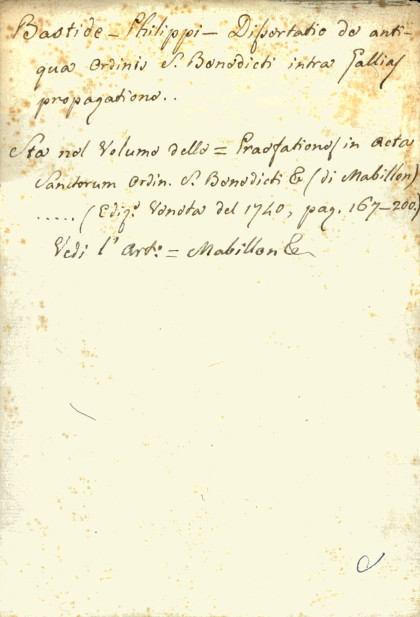 Bastide - Philippi - Dissertatio de anti-
qua Ordinis S. Benedicti intra Gallias
propagatione..
Sta nel Volume delle = Praefationes in Acta
Sanctorum Ordin. S. Benedicti & (di Mabillon)
..... (Ediz.e Veneta del 1740, pag. 167-200.)
Vedi l'Art.o = Mabillon &